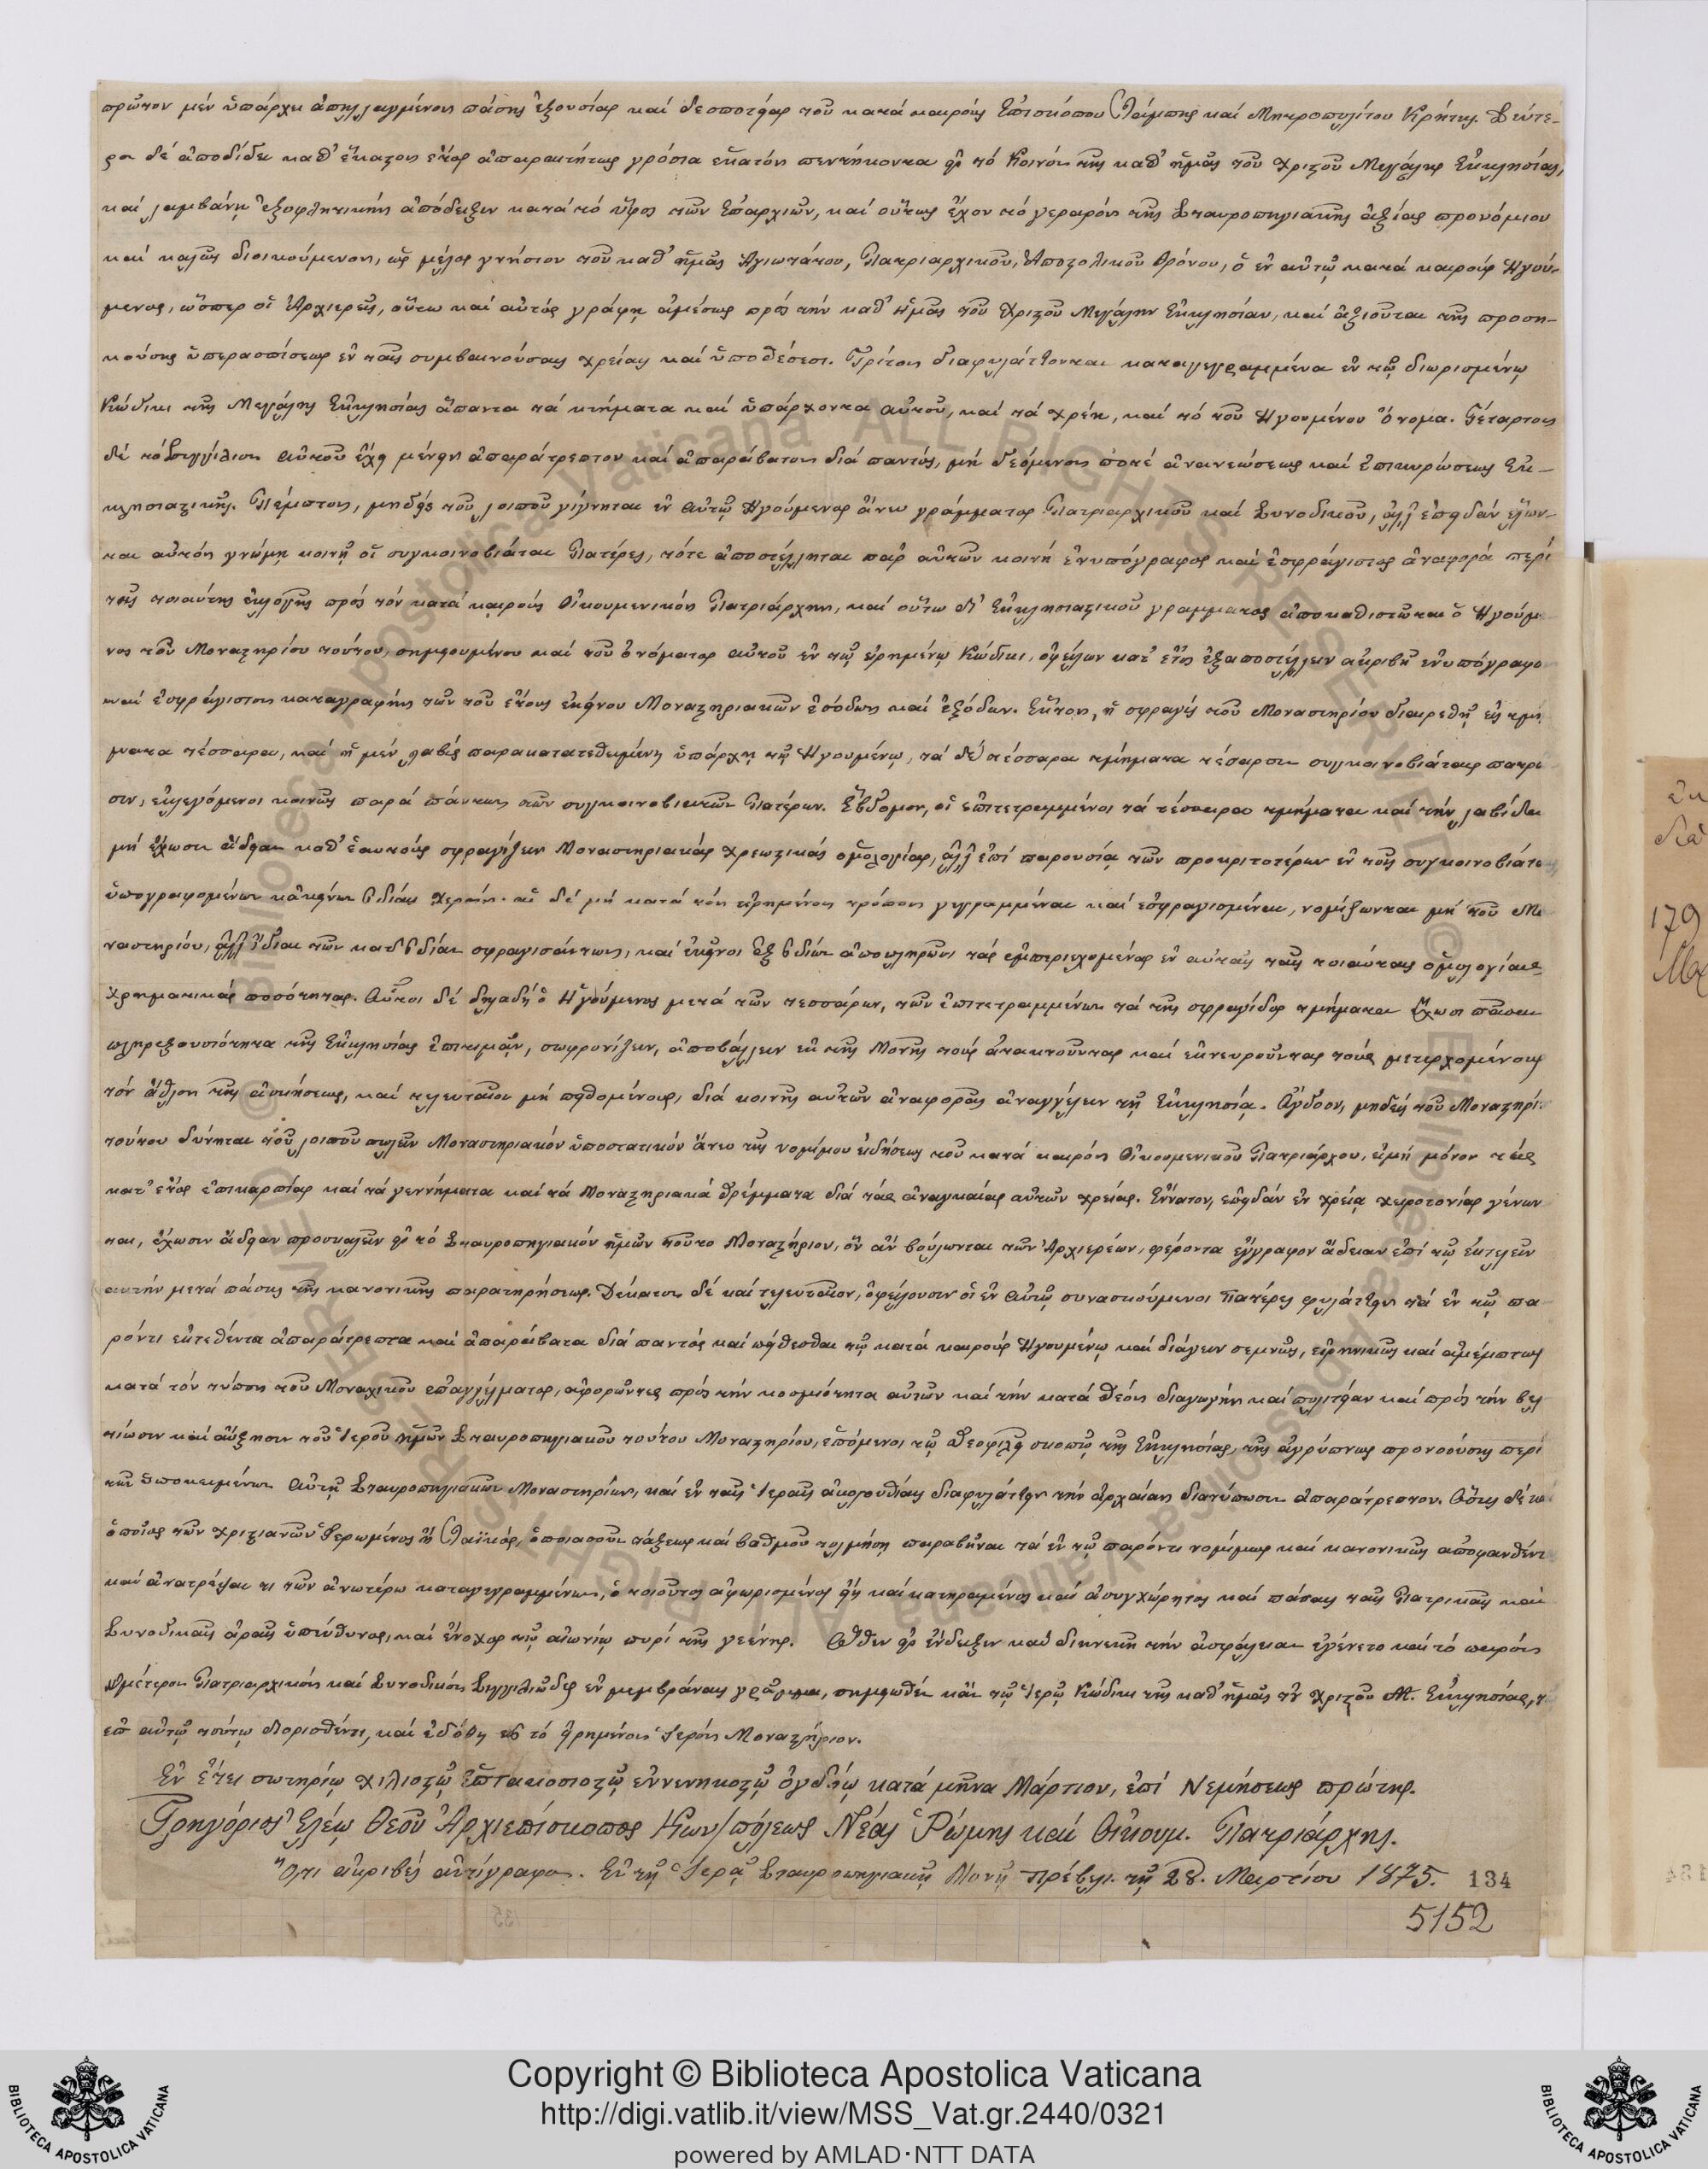 πρῶτον μέν ὑπάρχει ἀπηλλαγμένον πάσης ἐξουσίας καί δεσποτείας τοῦ κατά καιρούς Ἐπισκόπου Λάμπης καί Μητροπολίτου Κρήτης. Δεύτε-
ρον δέ ἀποδίδει καθ' ἕκαστον ἔτος ἀπαραιτήτως γρόσια ἑκατόν πεντήκοντα εἰς τό Κοινόν τῆς καθ' ἡμᾶς τοῦ Χριστοῦ Μεγάλης Ἐκκλησίας,
καί λαμβάνῃ ἐξοφλητικήν ἀπόδειξιν κατά τό ὕφος τῶν Ἐπαρχιῶν, καί οὕτως ἔχον τό γεραρόν τῆς Σταυροπηγιακῆς ἀξίας προνόμιον
καί καλῶς διοικούμενον, ὡς μέλος γνήσιον τοῦ καθ' ἡμᾶς Ἁγιωτάτου, Πατριαρχικοῦ, Ἀποστολικοῦ θρόνου, ὁ ἐν αὐτῷ κατά καιρούς Ἡγού-
μενος, ὥσπερ οἱ Ἀρχιερεῖς, οὕτω καί αὐτός γράφῃ ἀμέσως πρός τήν καθ' ἡμᾶς τοῦ Χριστοῦ Μεγάλην Ἐκκλησίαν, καί ἀξιοῦται τῆς προση-
κούσης ὑπερασπίσεως ἐν ταῖς συμβαινούσαις χρείαις καί ὑποθέσεσι. Τρίτον διαφυλάττονται καταγεγραμμένα ἐν τῷ διωρισμένῳ
Κώδικι τῆς Μεγάλης Ἐκκλησίας ἅπαντα τά κτήματα καί ὑπάρχοντα αὐτοῦ, καί τά χρέη, καί τό τοῦ Ἡγουμένου ὄνομα. Τέταρτον
δέ τό Σιγγίλιον αὐτοῦ ἔχῃ μένειν ἀπαράτρεπτον καί ἀπαράβατον διά παντός, μή δεόμενον ποτέ ἀνανεώσεως καί ἐπικυρώσεως Ἐκ-
κλησιαστικῆς. Πέμπτον, μηδείς τοῦ λοιποῦ γίγνηται ἐν αὐτῷ Ἡγούμενος ἄνευ γράμματος Πατριαρχικοῦ καί Συνοδικοῦ, ἀλλ' ἐπειδάν ἕλων-
ται αὐτόν γνώμῃ κοινῇ οἱ συγκοινοβιάται Πατέρες, τότε ἀποστέλληται παρ' αὐτῶν κοινή ἐνυπόγραφος καί ἐσφράγιστος ἀναφορά περί
τῆς τοιαύτης ἐκλογῆς πρός τόν κατά καιρούς Οἰκουμενικόν Πατριάρχην, καί οὕτω δι' Ἐκκλησιαστικοῦ γράμματος ἀποκαθιστῶται ὁ Ἡγούμε
νος τοῦ Μοναστηρίου τούτου, σημειουμένου καί τοῦ ὀνόματος αὐτοῦ ἐν τῷ εἰρημένῳ Κώδικι, ὀφείλων κατ' ἔτος ἐξαποστέλλειν ἀκριβῆ ἐνυπόγραφο
καί ἐσφράγιστον καταγραφήν τῶν τοῦ ἔτους ἐκείνου Μοναστηριακῶν ἐσόδων καί ἐξόδων. Ἕκτον, ἡ σφραγίς τοῦ Μοναστηρίου διαιρεθῇ εἰς τμή
ματα τέσσαρα, καί ἡ μέν λαβίς παρακατατεθειμένη ὑπάρχῃ τῷ Ἡγουμένῳ, τά δέ τέσσαρα τμήματα τέσαρσι συγκοινοβιάταις πατρά
σιν, ἐκλεγόμενοι κοινῶς παρά πάντων τῶν συγκοινοβιατῶν Πατέρων. Ἕβδομον, οἱ ἐπιτετραμμένοι τά τέσσαρα τμήματα καί τήν λαβίδα
μή ἔχωσι ἄδειαν καθ' ἑαυτούς σφραγίζειν Μοναστηριακάς χρεωστικάς ὁμολογίας, ἀλλ' ἐπί παρουσίᾳ τῶν προκριτοτέρων ἐν τοῖς συγκοινοβιάτ
ὑπογραφομένων κἀκείνων ἰδίαις χερσίν. αἱ δέ μή κατά τόν εἰρημένον τρόπον γεγραμμέναι καί ἐσφραγισμέναι, νομίζωνται μή τοῦ Μο
ναστηρίου, ἀλλ' ἴδιαι τῶν κατ' ἰδίαν σφραγισάντων, καί ἐκεῖνοι ἐξ ἰδίων ἀποπληρῶσι τάς ἐμπεριεχομένας ἐν αὐταῖς ταῖς τοιαύταις ὁμολογίαις
χρηματικάς ποσότητας. Αὐτοί δέ δηλαδή ὁ Ἡγούμενος μετά τῶν τεσσάρων, τῶν ἐπιτετραμμένων τά τῆς σφραγίδος τμήματα ἔχωσι πᾶσαν
πληρεξουσιότητα τῆς Ἐκκλησίας ἐπιτιμᾶν, σωφρονίζειν, ἀποβάλλειν ἐκ τῆς Μονῆς τούς ἀτακτοῦντας καί ἐκνευροῦντας τούς μετερχομένους
τόν ἆθλον τῆς ἀσκήσεως, καί τελευταῖον μή πειθομένους, διά κοινῆς αὐτῶν ἀναφορᾶς ἀναγγέλειν τῇ Ἐκκλησίᾳ. Ὄγδοον, μηδείς τοῦ Μοναστηρί
τούτου δύνηται τοῦ λοιποῦ πωλεῖν Μοναστηριακόν ὑποστατικόν ἄνευ τῆς νομίμου εἰδήσεως τοῦ κατά καιρόν Οἰκουμενικοῦ Πατριάρχου, εἰμή μόνον τάς
κατ' ἔτος ἐπικαρπίας καί τά γεννήματα καί τά Μοναστηριακά θρέμματα διά τάς ἀναγκαίας αὐτῶν χρείας. Ἔννατον, ἐπειδάν ἐν χρείᾳ χειροτονίας γένων
ται, ἔχωσιν ἄδειαν προσκαλεῖν εἰς τό Σταυροπηγιακόν ἡμῶν τοῦτο Μοναστήριον, ὅν ἄν βούλωνται τῶν Ἀρχιερέων, φέροντα ἔγγραφον ἄδειαν ἐπί τῷ ἐκτελεῖν
αὐτήν μετά πάσης τῆς κανονικῆς παρατηρήσεως. Δέκατον δέ καί τελευταῖον, ὀφείλουσιν οἱ ἐν αὐτῷ συνασκούμενοι Πατέρες φυλάττειν τά ἐν τῷ πα-
ρόντι ἐκτεθέντα ἀπαράτρεπτα καί ἀπαράβατα διά παντός καί πείθεσθαι τῷ κατά καιρούς Ἡγουμένῳ καί διάγειν σεμνῶς, εἰρηνικῶς καί ἀμέμπτως
κατά τόν τύπον τοῦ Μοναχικοῦ ἐπαγγέλματος, ἀφορῶντες πρός τήν κοσμιότητα αὐτῶν καί τήν κατά Θεόν διαγωγήν καί πολιτείαν καί πρός τήν βελ
τίωσιν καί αὔξησιν τοῦ Ἱεροῦ ἡμῶν Σταυροπηγιακοῦ τούτου Μοναστηρίου, ἑπόμενοι τῷ θεοφιλεῖ σκοπῷ τῆς Ἐκκλησίας, τῆς ἀγρύπνως προνοούσης περί
τῶν ὑποκειμένων αὐτῇ Σταυροπηγιακῶν Μοναστηρίων, καί ἐν ταῖς Ἱεραῖς ἀκολουθίαις διαφυλάττειν τήν ἀρχαίαν διατύπωσιν ἀπαράτρεπτον. Ὅστις δέ κα
ὁποῖος τῶν χριστιανῶν Ἱερωμένος ἤ Λαϊκός, ὁποιασοῦν τάξεως καί βαθμοῦ τολμήσῃ παραβῆναι τά ἐν τῷ παρόντι νομίμως καί κανονικῶς ἀποφανθέντ
καί ἀνατρέψαι τι τῶν ἀνωτέρω καταγεγραμμένων, ὁ τοιοῦτος ἀφωρισμένος εἴη καί κατηραμένος καί ἀσυγχώρητος καί πάσαις ταῖς Πατρικαῖς καί
Συνοδικαῖς ἀραῖς ὑπεύθυνος, καί ἔνοχος τῷ αἰωνίῳ πυρί τῆς γεέννης. Ὅθεν εἰς ἔνδειξιν καί διηνεκῆ τήν ἀσφάλειαν ἐγένετο καί τό παρόν
ἡμέτερον Πατριαρχικόν καί Συνοδικόν Σιγγιλιῶδες ἐν μεμβράναις γράμμα, σημειωθέν κἀν τῷ Ἱερῷ Κώδικι τῆς καθ' ἡμᾶς τοῦ Χριστοῦ Μ. Ἐκκλησίας,
ἐπ' αὐτῷ τούτῳ διορισθέντι, καί ἐδόθη εἰς τό εἰρημένον Ἱερόν Μοναστήριον.
Ἐν ἔτει σωτηρίῳ χιλιοστῷ ἑπτακοσιοστῷ ἐννενηκοστῷ ὀγδόῳ κατά μῆνα Μάρτιον, ἐπί Νεμήσεως πρώτης.
Γρηγόριος Ἐλέῳ Θεοῦ Ἀρχιεπίσκοπος Κων/πόλεως Νέας Ῥώμης καί Οἰκουμ. Πατριάρχης.
Ὅτι ἀκριβές ἀντίγραφον. Ἐν τῇ Ἱερᾷ Σταυροπηγιακῇ Μονῇ Πρέβελι τῇ 28. Μαρτίου 1875. 134
5152
Copyright © Biblioteca Apostolica Vaticana
http://digi.vatlib.it/view/MSS_Vat.gr.2440/0321
powered by AMLAD·NTT DATA
BIBLIOTECA APOSTOLICA VATICANA
BIBLIOTECA APOSTOLICA VATICANA